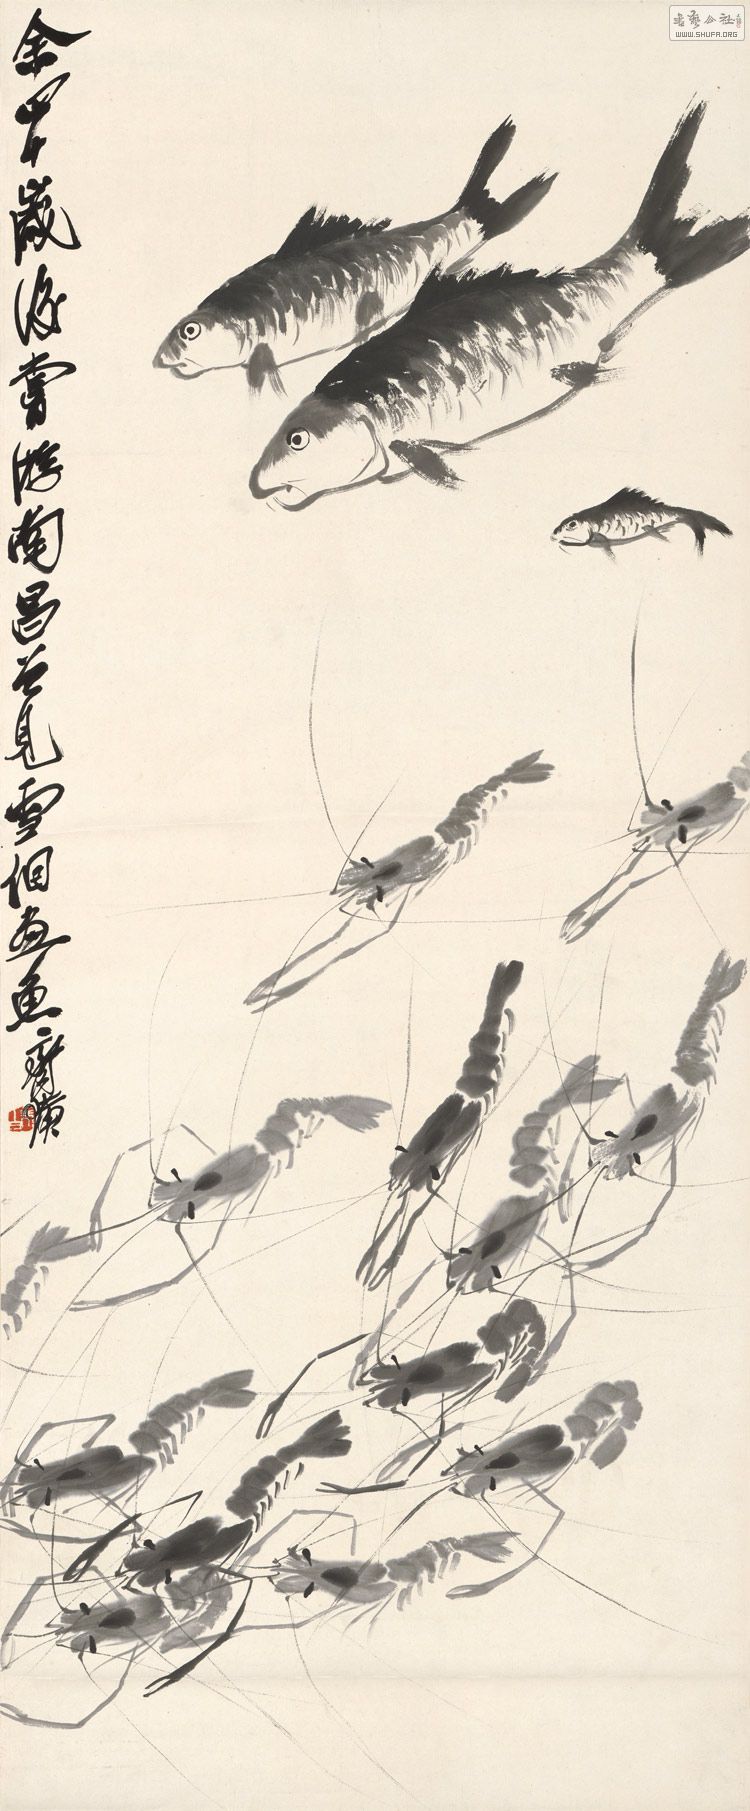 余四十歲後嘗游南昌曾見雪個畫魚 齊璜
書藝公社
WWW.SHUFA.ORG